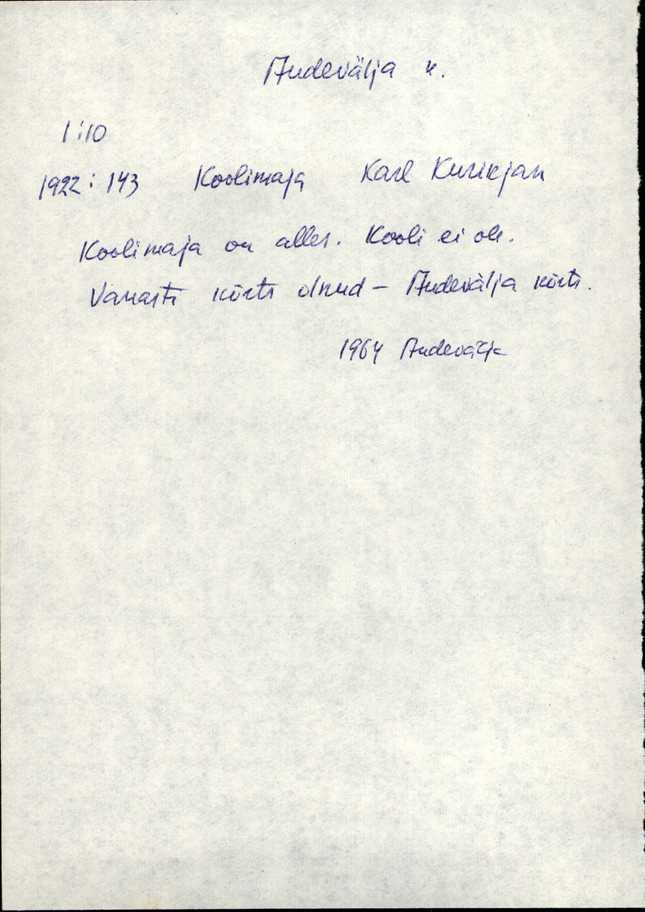 Audevälja k.
1:10
1922:143 Koolimaja Karl
Koolimaja on alles. Kooli ei ole.
Vanasti kõrts olnud – Audevälja kõrts.
1964 Audevälja